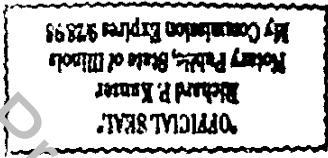 "OFFICIAL SEAL"
Richard P.
Notary Public, State of Illinois
My Commission Expires 9/28/98